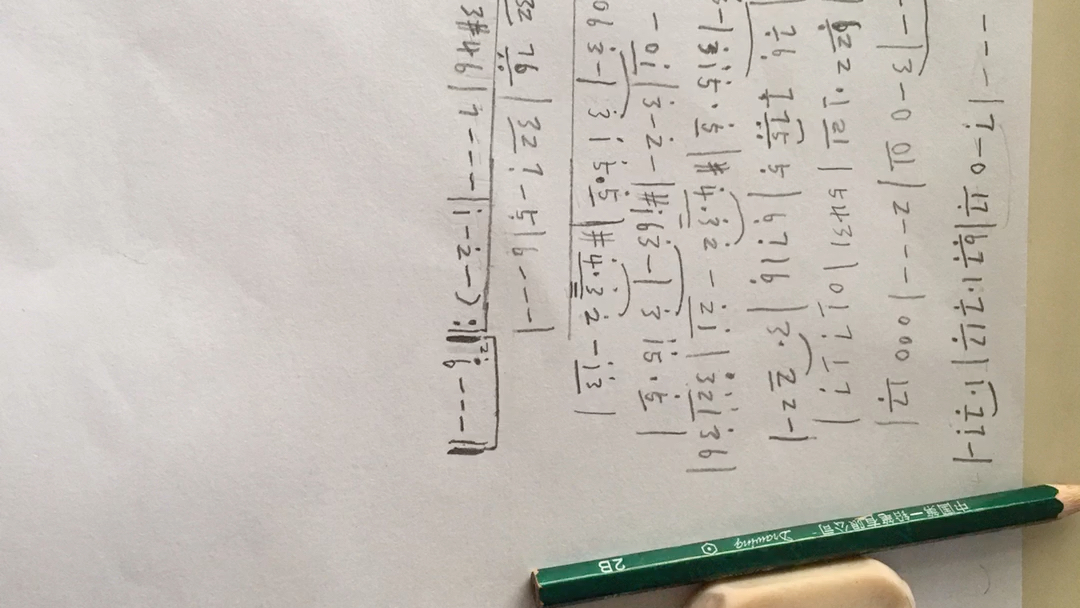 - - - | 7 - 0 17 | 6 7 1 · 7 | 2 17 | 1 · 7 7 - |
- - | 3 - 0 01 | 2 - - - | 000 17 |
6 2 2 · 1 21 | 5 4 3 1 | 01 7 1 7 |
76 7 75 5 | 6 7 1 6 | 3 · 2 2 - |
- | 3 1 5 · 5 | #4 · 3 2 - 21 | 32 1 3 6 |
- 01 | 3 - 2 - | #1 6 3 - | 3 1 5 · 5 |
06 3 - | 3 1 5 · 5 | #4 · 3 2 - 13 |
32 76 | 32 7 - 5 | 6 - - - |
3 #4 6 | 7 - - - | 1 - 2 - ) :|| 2. 6 - - - ||
中国第一铅笔有限公司
Drawing
2B